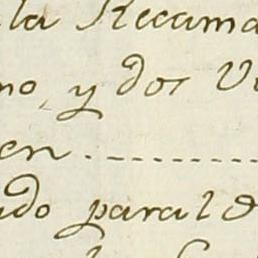 la Recama
no, y dos V
en . - - - - - - - - -
ado para l d